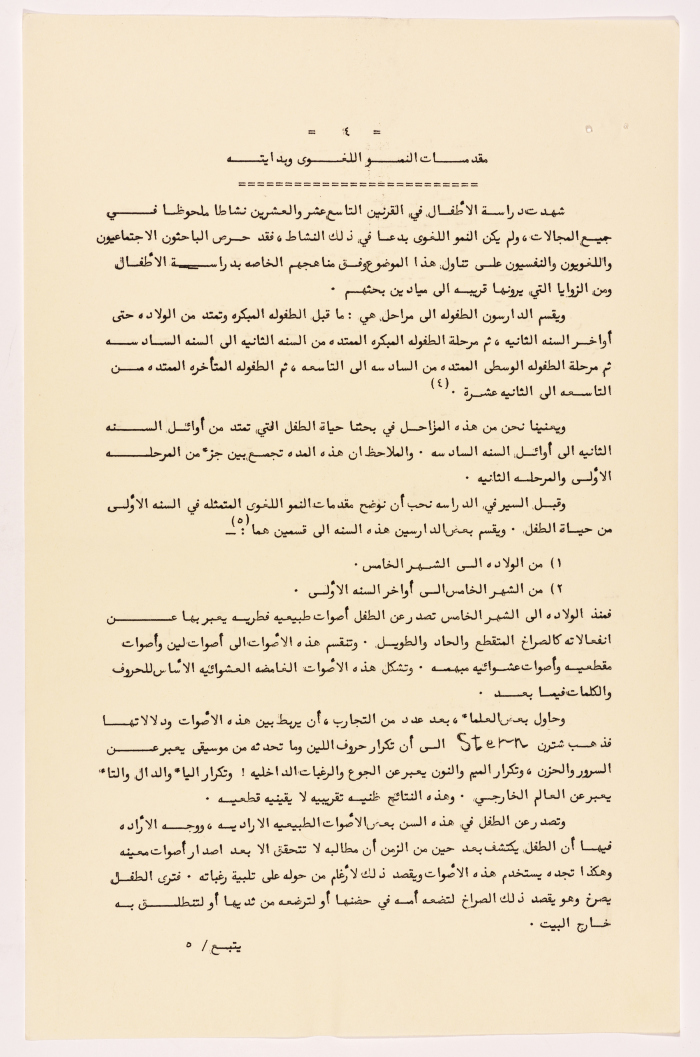 = ٤ =
مقدمات النمو اللغوى وبدايته
==========================
شهدت دراسة الأطفال في القرنين التاسع عشر والعشرين نشاطا ملحوظا في
جميع المجالات ، ولم يكن النمو اللغوى بدعا في ذلك النشاط ، فقد حرص الباحثون الاجتماعيون
واللغويون والنفسيون على تناول هذا الموضوع وفق مناهجهم الخاصه بدراسة الأطفال
ومن الزوايا التي يرونها قريبه الى ميادين بحثهم .
ويقسم الدارسون الطفوله الى مراحل هي : ما قبل الطفوله المبكره وتمتد من الولاده حتى
أواخر السنه الثانيه ، ثم مرحلة الطفوله المبكره الممتده من السنه الثانيه الى السنه السادسه
ثم مرحلة الطفوله الوسطى الممتده من السادسه الى التاسعه ، ثم الطفوله المتأخره الممتده من
التاسعه الى الثانيه عشرة . (٤)
ويعنينا نحن من هذه المراحل في بحثنا حياة الطفل التي تمتد من أوائل السنه
الثانيه الى أوائل السنه السادسه . والملاحظ ان هذه المده تجمع بين جزء من المرحله
الأولى والمرحله الثانيه .
وقبل السير في الدراسه نحب أن نوضح مقدمات النمو اللغوى المتمثله في السنه الأولى
من حياة الطفل . ويقسم بعض الدارسين هذه السنه الى قسمين هما (٥) : ـ
١) من الولاده الى الشهر الخامس .
٢) من الشهر الخامس الى أواخر السنه الأولى .
فمنذ الولاده الى الشهر الخامس تصدر عن الطفل أصوات طبيعيه فطريه يعبر بها عن
انفعالاته كالصراخ المتقطع والحاد والطويل . وتنقسم هذه الأصوات الى أصوات لين وأصوات
مقطعيه وأصوات عشوائيه مبهمه . وتشكل هذه الأصوات الغامضه العشوائيه الأساس للحروف
والكلمات فيما بعد .
وحاول بعض العلماء ، بعد عدد من التجارب ، أن يربط بين هذه الأصوات ودلالاتها
فذهب شترن Stern الى أن تكرار حروف اللين وما تحدثه من موسيقى يعبر عن
السرور والحزن ، وتكرار الميم والنون يعبر عن الجوع والرغبات الداخليه ! وتكرار الياء والدال والتاء
يعبر عن العالم الخارجي . وهذه النتائج ظنيه تقريبيه لا يقينيه قطعيه .
وتصدر عن الطفل في هذه السن بعض الأصوات الطبيعيه الاراديه ، ووجه الأراده
فيها أن الطفل يكتشف بعد حين من الزمن أن مطالبه لا تتحقق الا بعد اصدار أصوات معينه
وهكذا تجده يستخدم هذه الأصوات ويقصد ذلك لأرغام من حوله على تلبية رغباته . فترى الطفل
يصرخ وهو يقصد ذلك الصراخ لتضعه أمه في حضنها أو لترضعه من ثديها أو لتنطلق به
خارج البيت .
يتبع / ٥